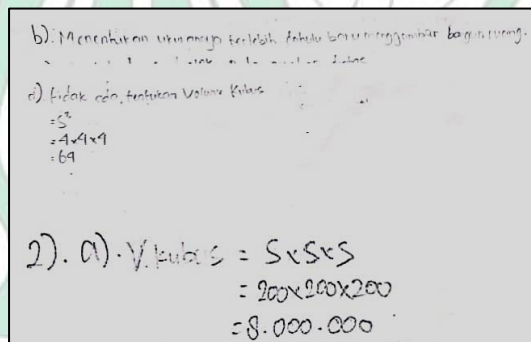 b). Menentukan ukurannya terlebih dahulu baru menggambar bangun ruang.
d) tidak ada, tentukan Volume Kubus
= S²
= 4x4x4
= 64
2). a). V. kubus = SxSxS
= 200x200x200
= 8.000.000